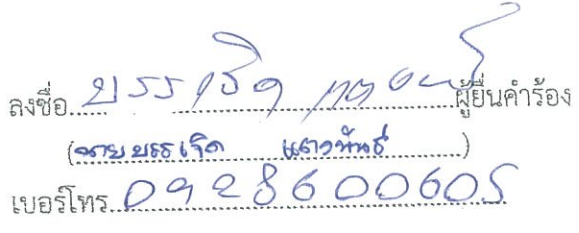 ลงชื่อ บรรเจิด แตงพันธ์ ผู้ยื่นคำร้อง
(นายบรรเจิด แตงพันธ์)
เบอร์โทร. 0928600605